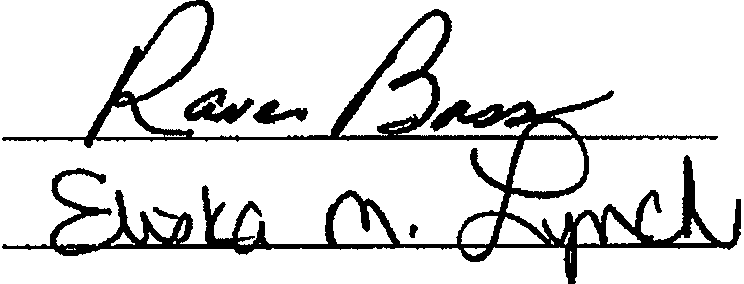 Raven Bass
Eliska M. Lynch